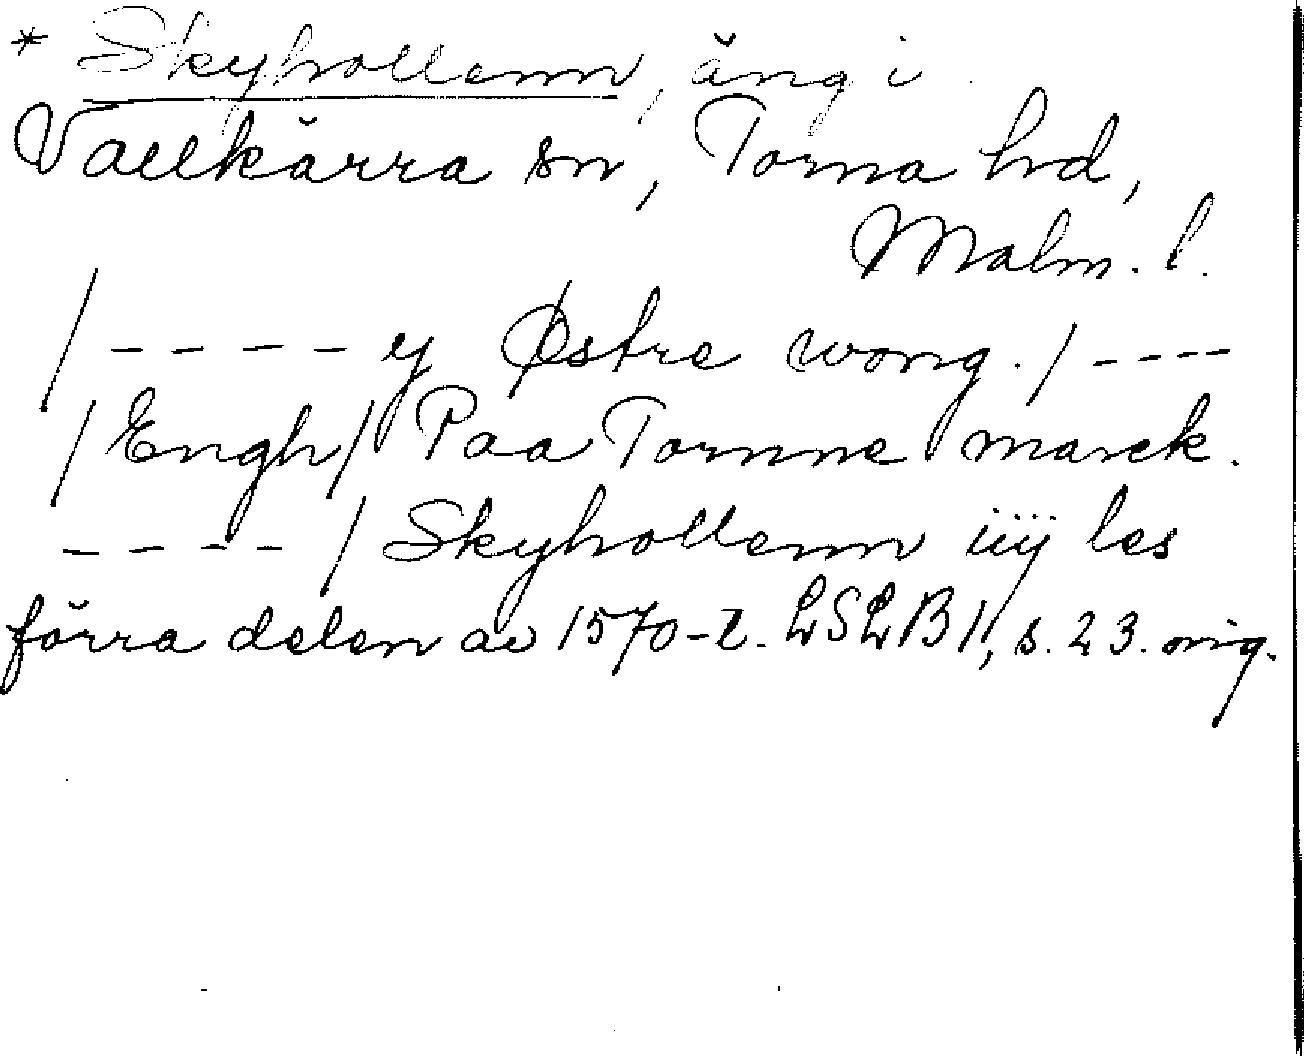 * Skyhollenn, äng i
Vallkärra sn, Torna hd,
Malm. l.
/ - - - - y Østre wong. / - - - -
/ Engh / Paa Tornne marck.
- - - - / Skyhollenn iiij les
förra delen av 1570-t. LSLB 1, s. 23. orig.